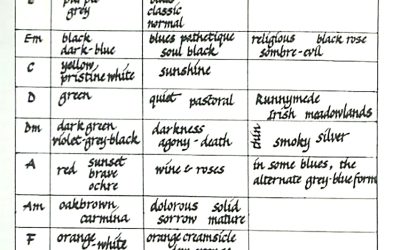 E purple blues
grey classic
normal
Em black blues pathetique religious black rose
dark-blue soul black sombre-evil
C yellow, sunshine
pristine white
D green quiet pastoral Runnymede
Irish meadowlands
Dm dark green darkness thin smoky silver
violet-grey-black agony-death
A red sunset wine & roses in some blues, the
brave alternate grey-blue form
ochre
Am oakbrown, dolorous solid
carmina sorrow mature
F orange orange creamsicle
&-white